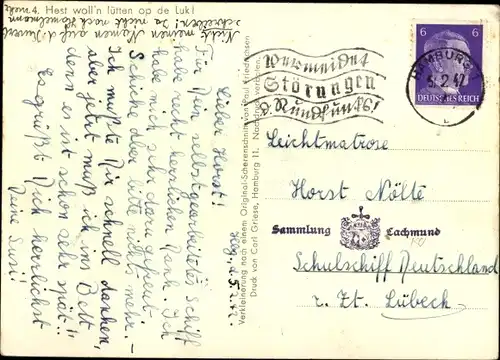 4. Hest woll'n lütten op de Luk!
Nicht meinen Namen auf d. Kuvert
schreiben! Ja nicht
Hbg. d. 5.2.42.
Lieber Horst!
Für Dein selbstgearbeitetes Schiff
habe recht herzlichen Dank. Ich
habe mich sehr dazu gefreut.
Schicke aber bitte nichts mehr. –
Ich mußte Dir schnell danken,
aber jetzt muß ich ins Bett
denn es ist schon sehr spät!!
Es grüßt Dich herzlichst
Deine Susi!
Verkleinerung nach einem Original-Scherenschnitt von Paul Friedrichsen
Druck von Carl Griese, Hamburg 11. Nachdruck verboten.
Vermeidet
Störungen
d. Rundfunks!
HAMBURG
5.2.42
6 6
DEUTSCHES REICH
Leichtmatrose
Horst Nölte
Sammlung Lachmund
Schulschiff Deutschland
z. Zt. Lübeck